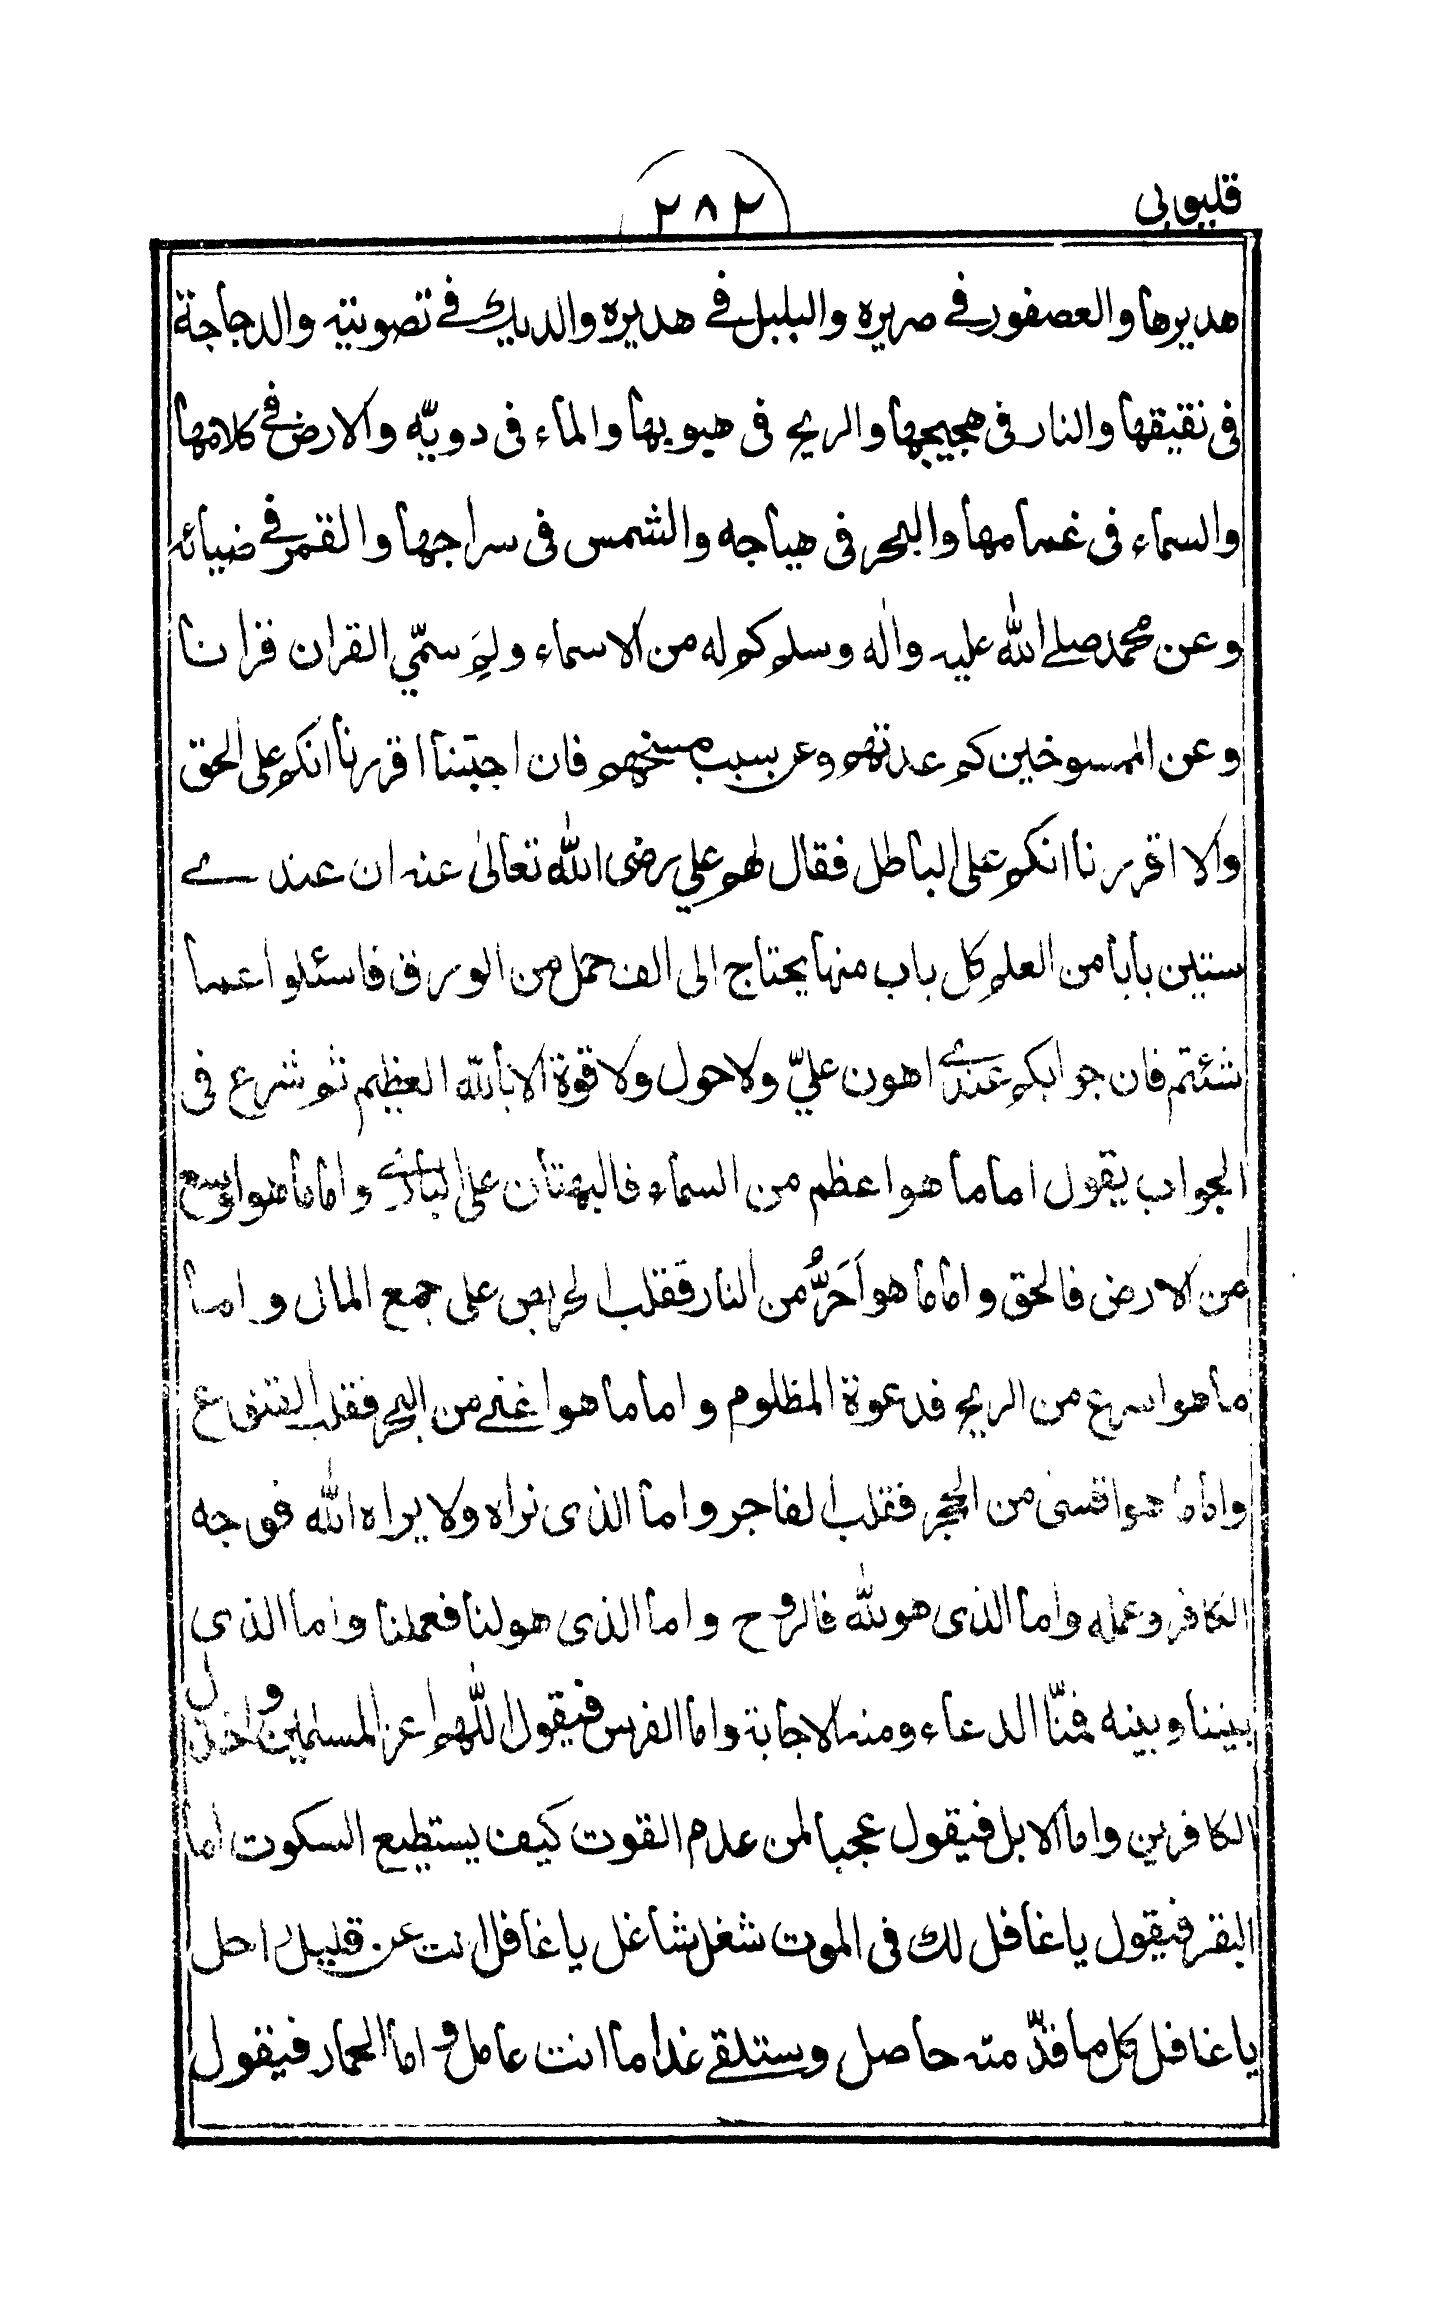 قليوبى
٢٨٢
هديرها والعصفور فے صريره والبلبل فے هديره والديك فے تصويته والدجاجة
فى نقيقها والنار فى هجيجها والريح فى هبوبها والماء فى دويّه والارض فے كلامها
والسماء فى غمامها والبحر فى هياجه والشمس فى سراجها والقمر فے ضيائه
وعن محمد صلے الله عليه واٰله وسلم كم له من الاسماء ولِمَ سمّي القران قرانا
وعن الممسوخين كم عدتهم وعن سبب مسخهم فان اجبتنا اقررنا انكم على الحق
والا اقررنا انكم على الباطل فقال لهم علي رضى الله تعالىٰ عنه ان عندے
ستين بابا من العلم كل باب منها يحتاج الى الف حمل من الورق فاسئلوا عما
شئتم فان جوابكم عندے اهون عليّ ولاحول ولاقوة الا بالله العظيم ثم شرع فى
الجواب يقول اماما هو اعظم من السماء فالبهتان على البارے واماما هو اوسع
من الارض فالحق واماما هو اَحَرُّ من النار فقلب الحريص على جمع المال واما
ما هو اسرع من الريح فدعوة المظلوم واماما هو اغنے من البحر فقلب القنوع
واماما هو اقسى من الحجر فقلب الفاجر واما الذى نراه ولا يراه الله فوجه
الكافر وعمله واما الذى هو لله فالروح واما الذى هو لنا فعملنا واما الذى
بيننا وبينه فمنّا الدعاء ومنه الاجابة واما الفرس فيقول اللّٰهم اعز المسلمين واخذل
الكافرين واما الابل فيقول عجبا لمن عدم القوت كيف يستطيع السكوت اما
البقر فيقول يا غافل لك فى الموت شغل شاغل يا غافل انت عن قليل راحل
يا غافل كل ما قدّمته حاصل وستلقے غدا ما انت عامل واما الحمار فيقول